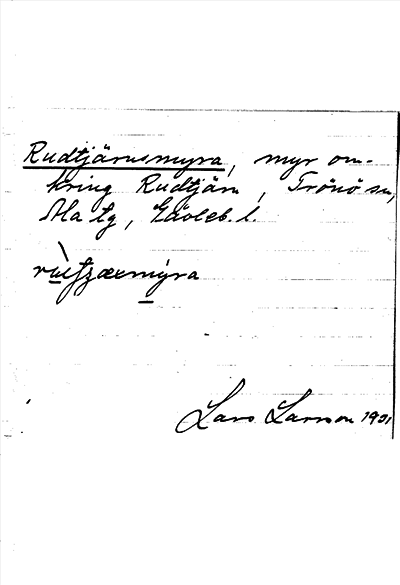 Rudtjärnsmyra, myr om-
kring Rudtjärn, Trönö sn,
Ala tg, Gävleb. l.
Lars Larsson 1931